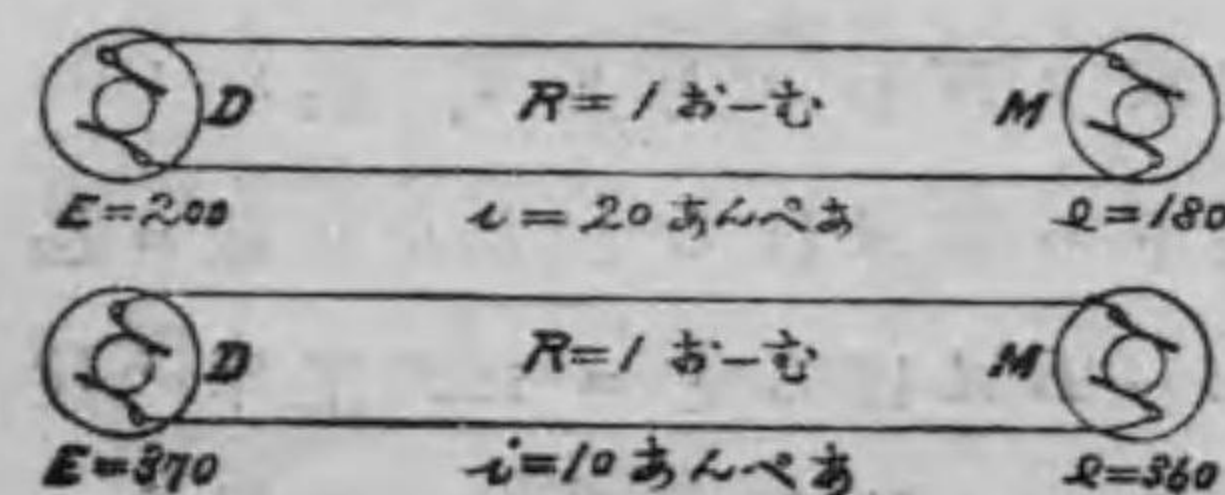 D R=1 おーむ M
E=200 i=20あんぺあ e=180
D R=1 おーむ M
E=370 i=10あんぺあ e=360